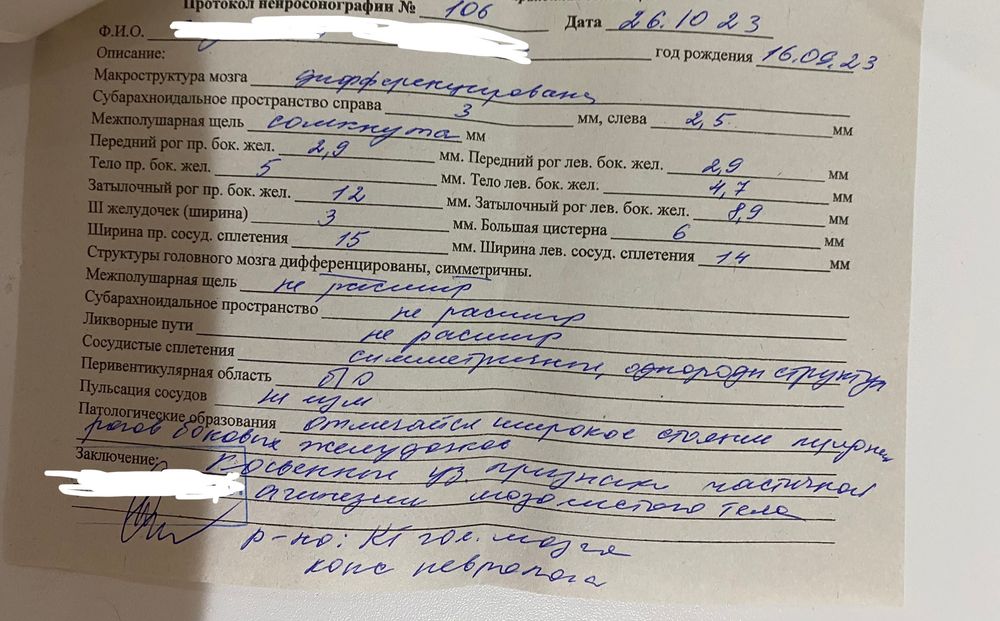 Протокол нейросонографии № 106
Дата 26.10.23
Ф.И.О. год рождения 16.09.23
Описание:
Макроструктура мозга дифференцирована
Субарахноидальное пространство справа 3 мм, слева 2,5 мм
Межполушарная щель сомкнута мм
Передний рог пр. бок. жел. 2,9 мм. Передний рог лев. бок. жел. 2,9 мм
Тело пр. бок. жел. 5 мм. Тело лев. бок. жел. 4,7 мм
Затылочный рог пр. бок. жел. 12 мм. Затылочный рог лев. бок. жел. 8,9 мм
III желудочек (ширина) 3 мм. Большая цистерна 6 мм
Ширина пр. сосуд. сплетения 15 мм. Ширина лев. сосуд. сплетения 14 мм
Структуры головного мозга дифференцированы, симметричны.
Межполушарная щель не расшир
Субарахноидальное пространство не расшир
Ликворные пути не расшир
Сосудистые сплетения симметричные, однородн структуры
Перивентикулярная область б/о
Пульсация сосудов не изм
Патологические образования отмечается широкое стояние передних
рогов боковых желудочков
Заключение: Косвенные уз признаки частичной
агенезии мозолистого тела
р-но: КТ гол. мозга
конс невролога